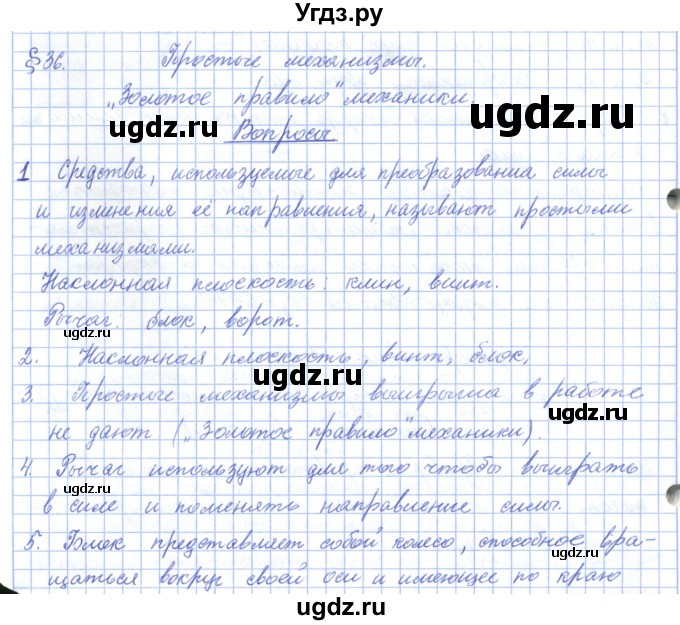 Угдз.ру
§ 36. Простые механизмы.
„Золотое правило" механики.
ugdz.ru ugdz.ru
Вопросы
1 Средства, используемые для преобразования силы
и изменения её направления, называют простыми
механизмами.
ugdz.ru
Наклонная плоскость: клин, винт.
Рычаг: блок, ворот.
ugdz.ru ugdz.ru
2. Наклонная плоскость, винт, блок.
ugdz.ru
3. Простые механизмы выигрыша в работе
ugdz.ru
не дают („Золотое правило" механики).
4. Рычаг используют для того чтобы выиграть
ugdz.ru
в силе и поменять направление силы.
5. Блок представляет собой колесо, способное вра-
ugdz.ru ugdz.ru
щаться вокруг своей оси и имеющее по краю
ugdz.ru